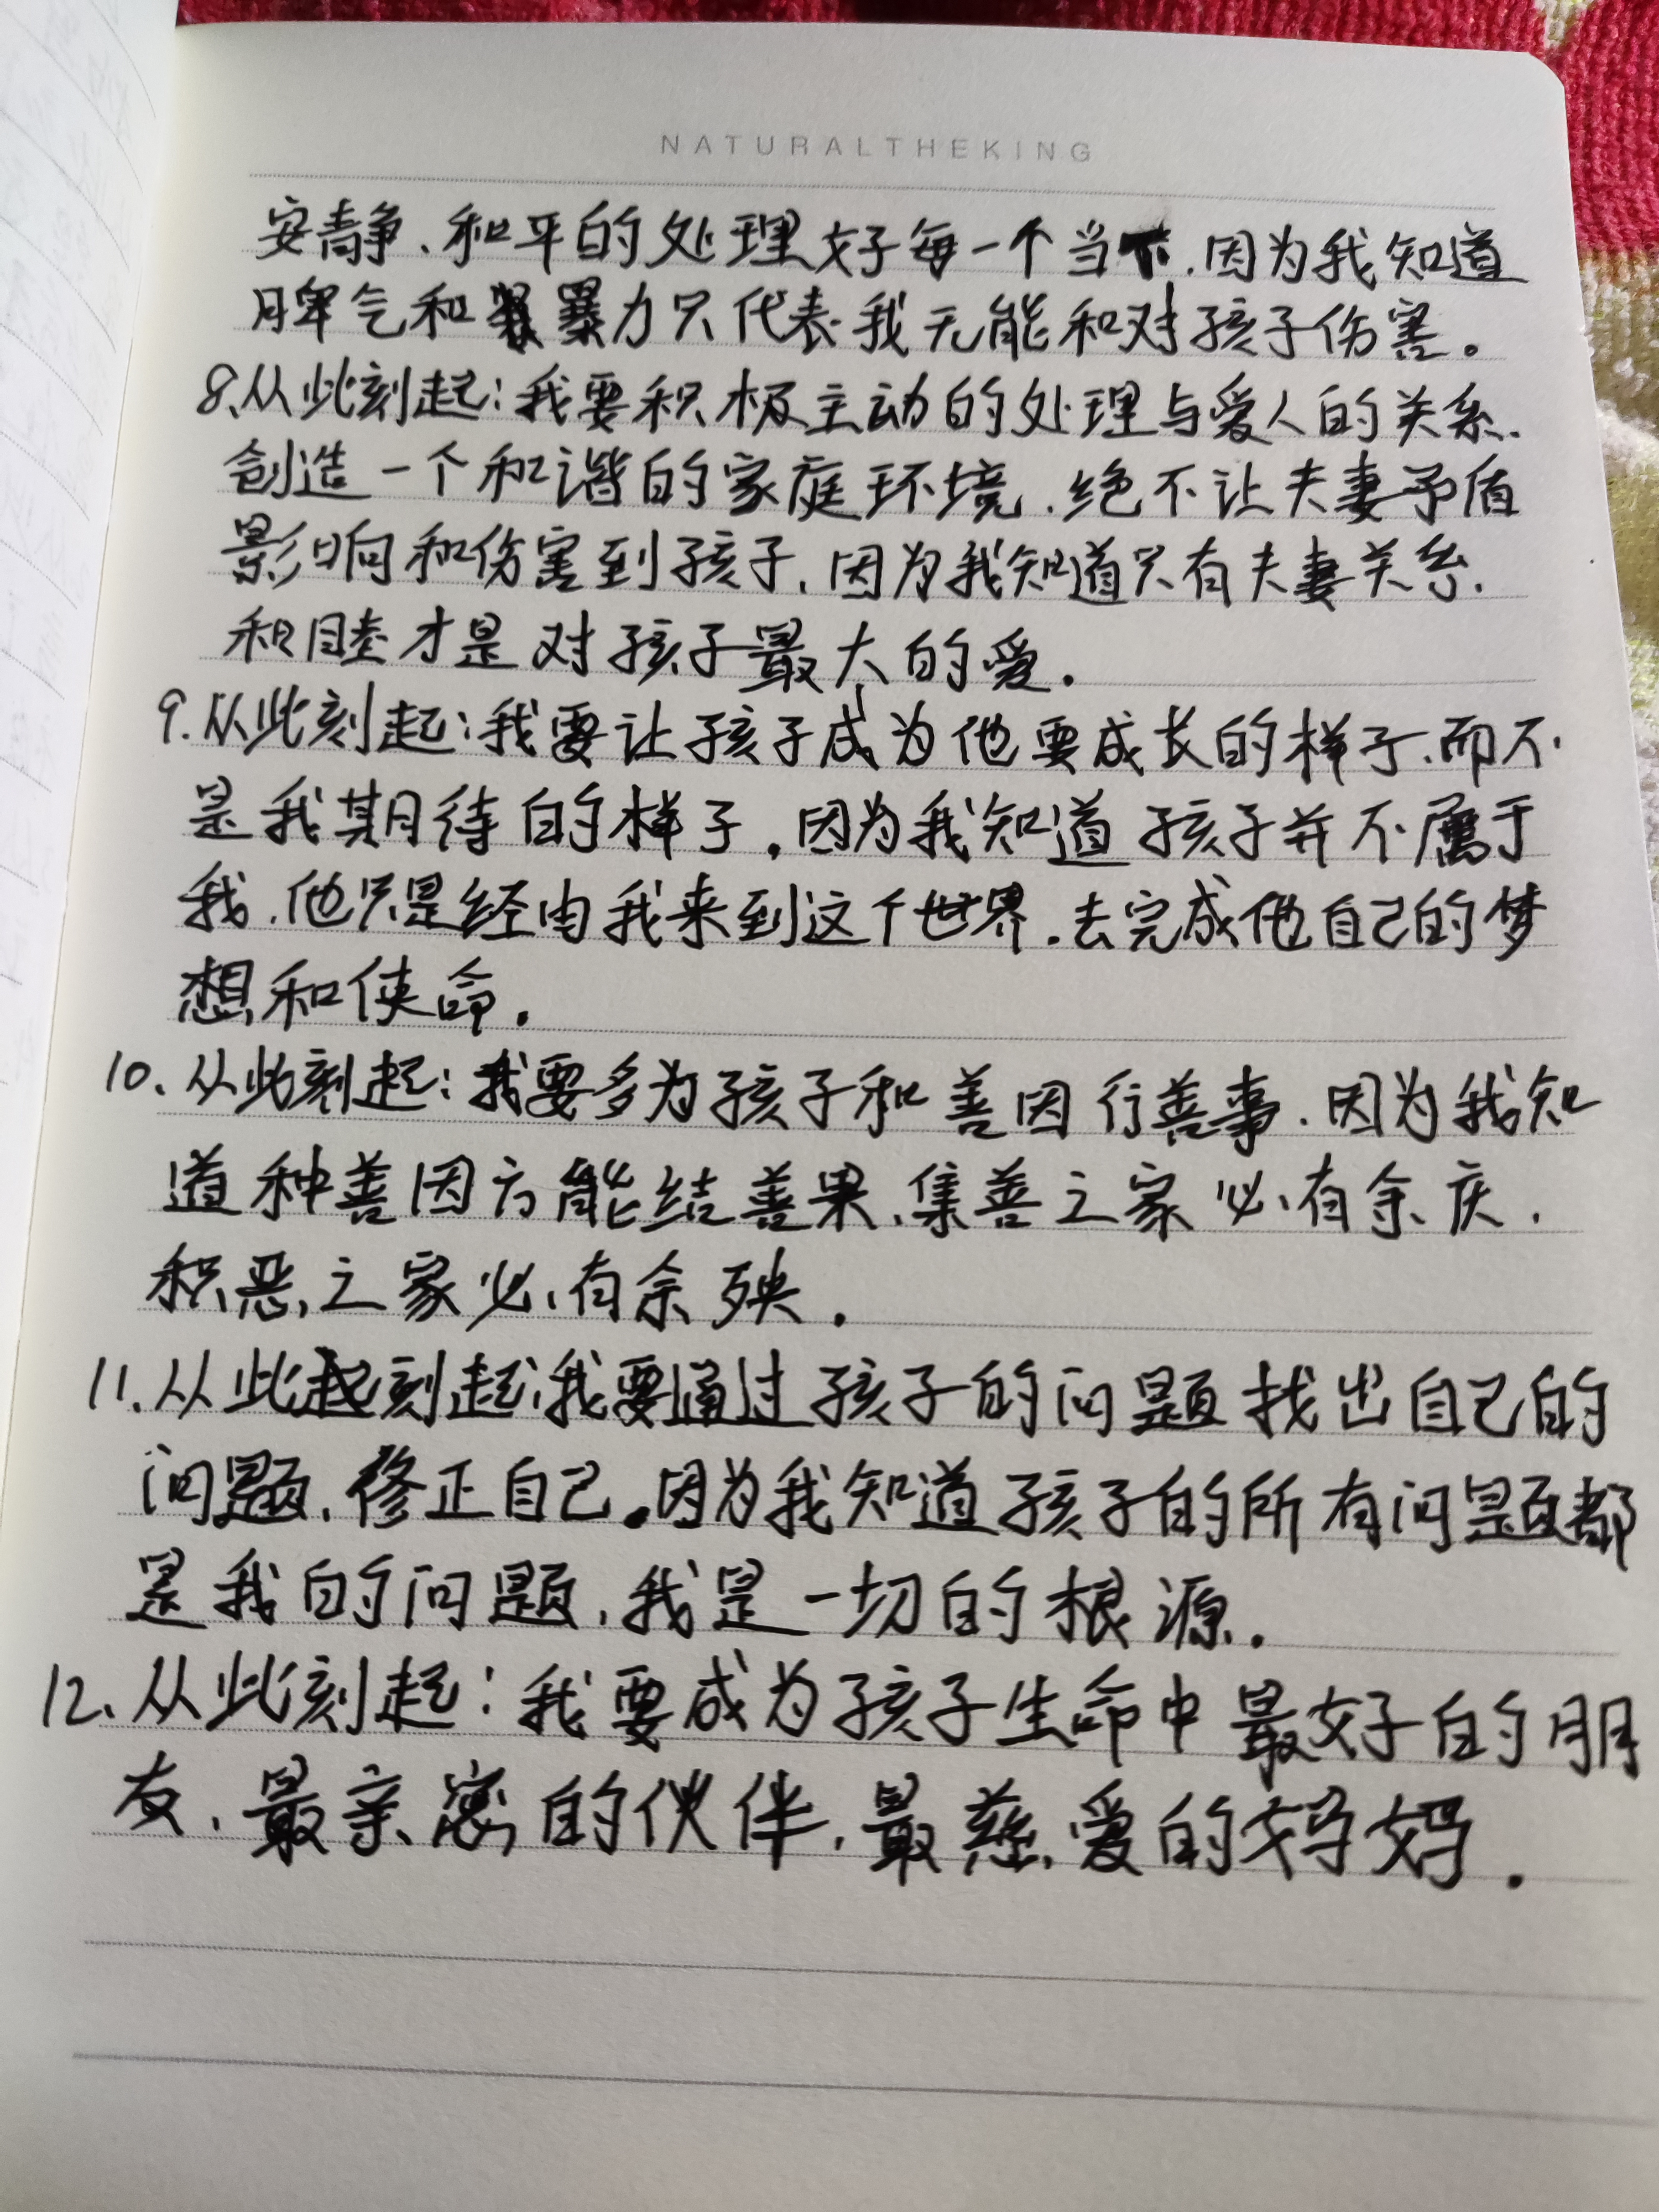 NATURALTHEKING
安静、和平的处理好每一个当下.因为我知道
脾气和暴力只代表我无能和对孩子伤害。
8.从此刻起:我要积极主动的处理与爱人的关系.
创造一个和谐的家庭环境.绝不让夫妻予盾
影响和伤害到孩子.因为我知道只有夫妻关系.
和睦才是对孩子最大的爱.
9.从此刻起:我要让孩子成为他要成长的样子.而不
是我期待的样子.因为我知道孩子并不属于
我.他只是经由我来到这个世界.去完成他自己的梦
想和使命.
10.从此刻起:我要多为孩子和善因行善事.因为我知
道种善因方能结善果、集善之家必有余庆.
积恶之家必有余殃.
11.从此刻起:我要通过孩子的问题找出自己的
问题.修正自己.因为我知道孩子的所有问题都
是我的问题.我是一切的根源.
12.从此刻起:我要成为孩子生命中最好的朋
友.最亲密的伙伴.最慈爱的妈妈.